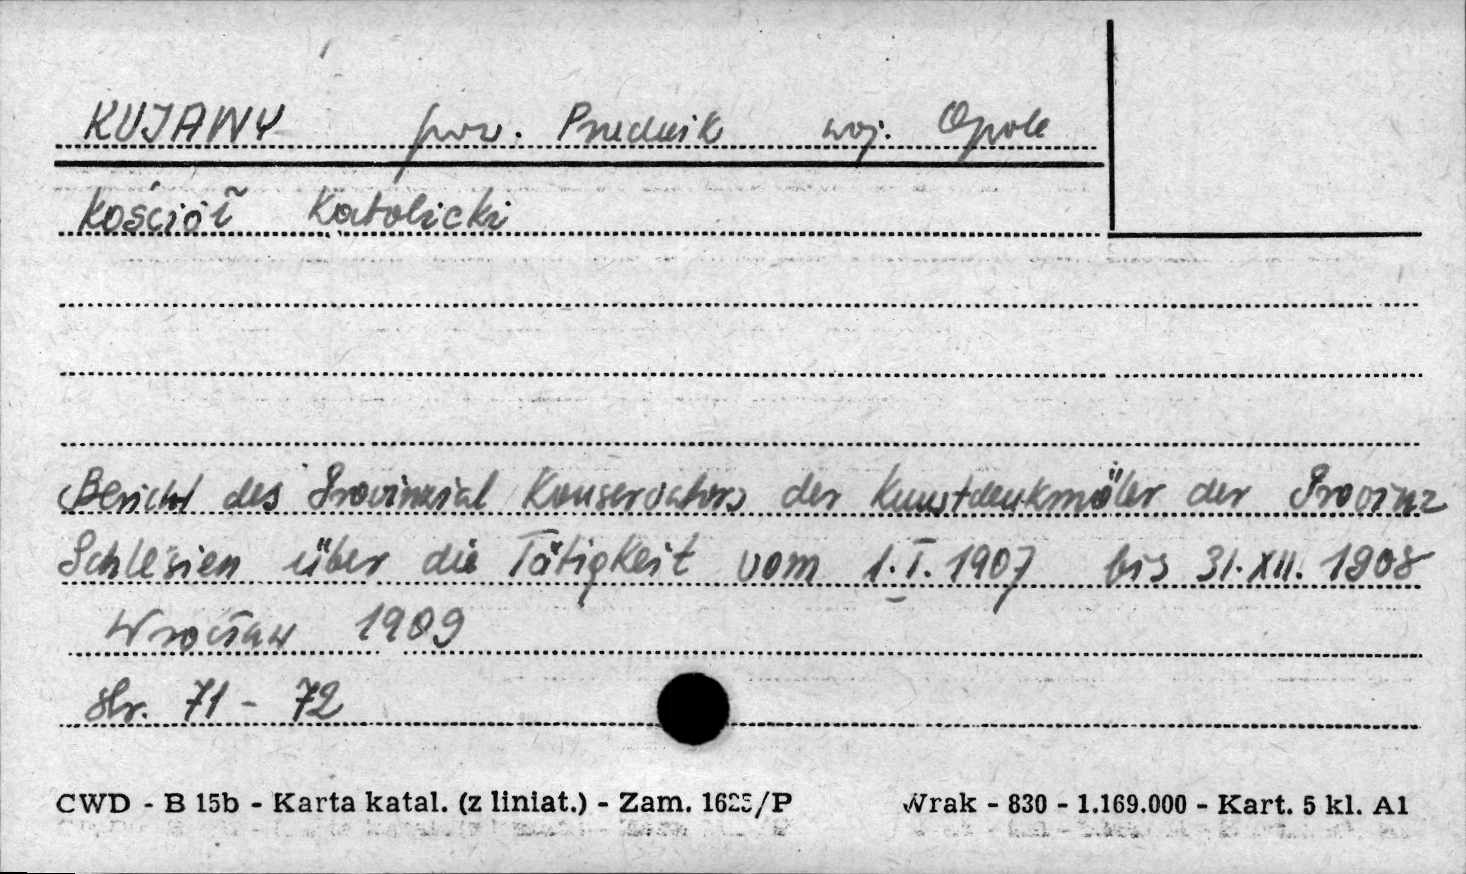 KUJAWY pow. Prudnik woj. Opole
Kościół Katolicki
Bericht des Provinzial Konservators der Kunstdenkmäler der Provinz
Schlesien über die Tätigkeit vom 1.I.1907 bis 31.XII.1908
Wrocław 1909
str. 71 - 72
CWD - B 15b - Karta katal. (z liniat.) - Zam. 1625/P Wrak - 830 - 1.169.000 - Kart. 5 kl. A1